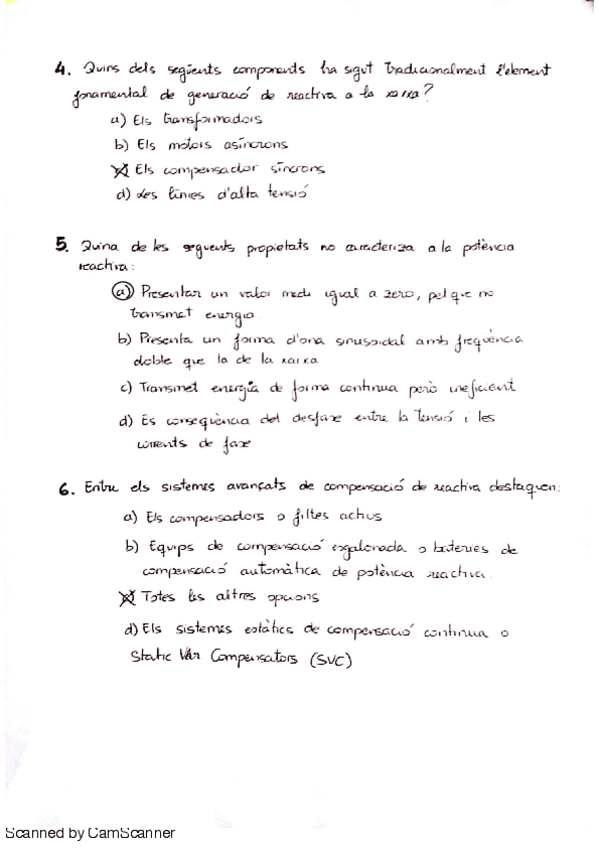 4. Quins dels següents components ha sigut tradicionalment l'element
fonamental de generació de reactiva a la xarxa?
a) Els transformadors
b) Els motors asíncrons
c) Els compensador síncrons
d) Les línies d'alta tensió
5. Quina de les seguents propietats no caracteriza a la potència
reactiva:
a) Presentar un valor medi igual a zero, pel que no
transmet energia
b) Presenta un forma d'ona sinusoidal amb freqüència
doble que la de la xarxa
c) Transmet energía de forma continua però ineficient
d) Es conseqüència del desfaxe entre la tensió i les
corrents de faxe
6. Entre els sistemes avançats de compensació de reactiva destaquen:
a) Els compensadors o filtes actius
b) Equips de compensació esgalonada o bateries de
compensació automàtica de potència reactiva.
Totes les altres opcions
d) Els sistemes estàtics de compensació continua o
Static Var Compensators (SVC)
Scanned by CamScanner